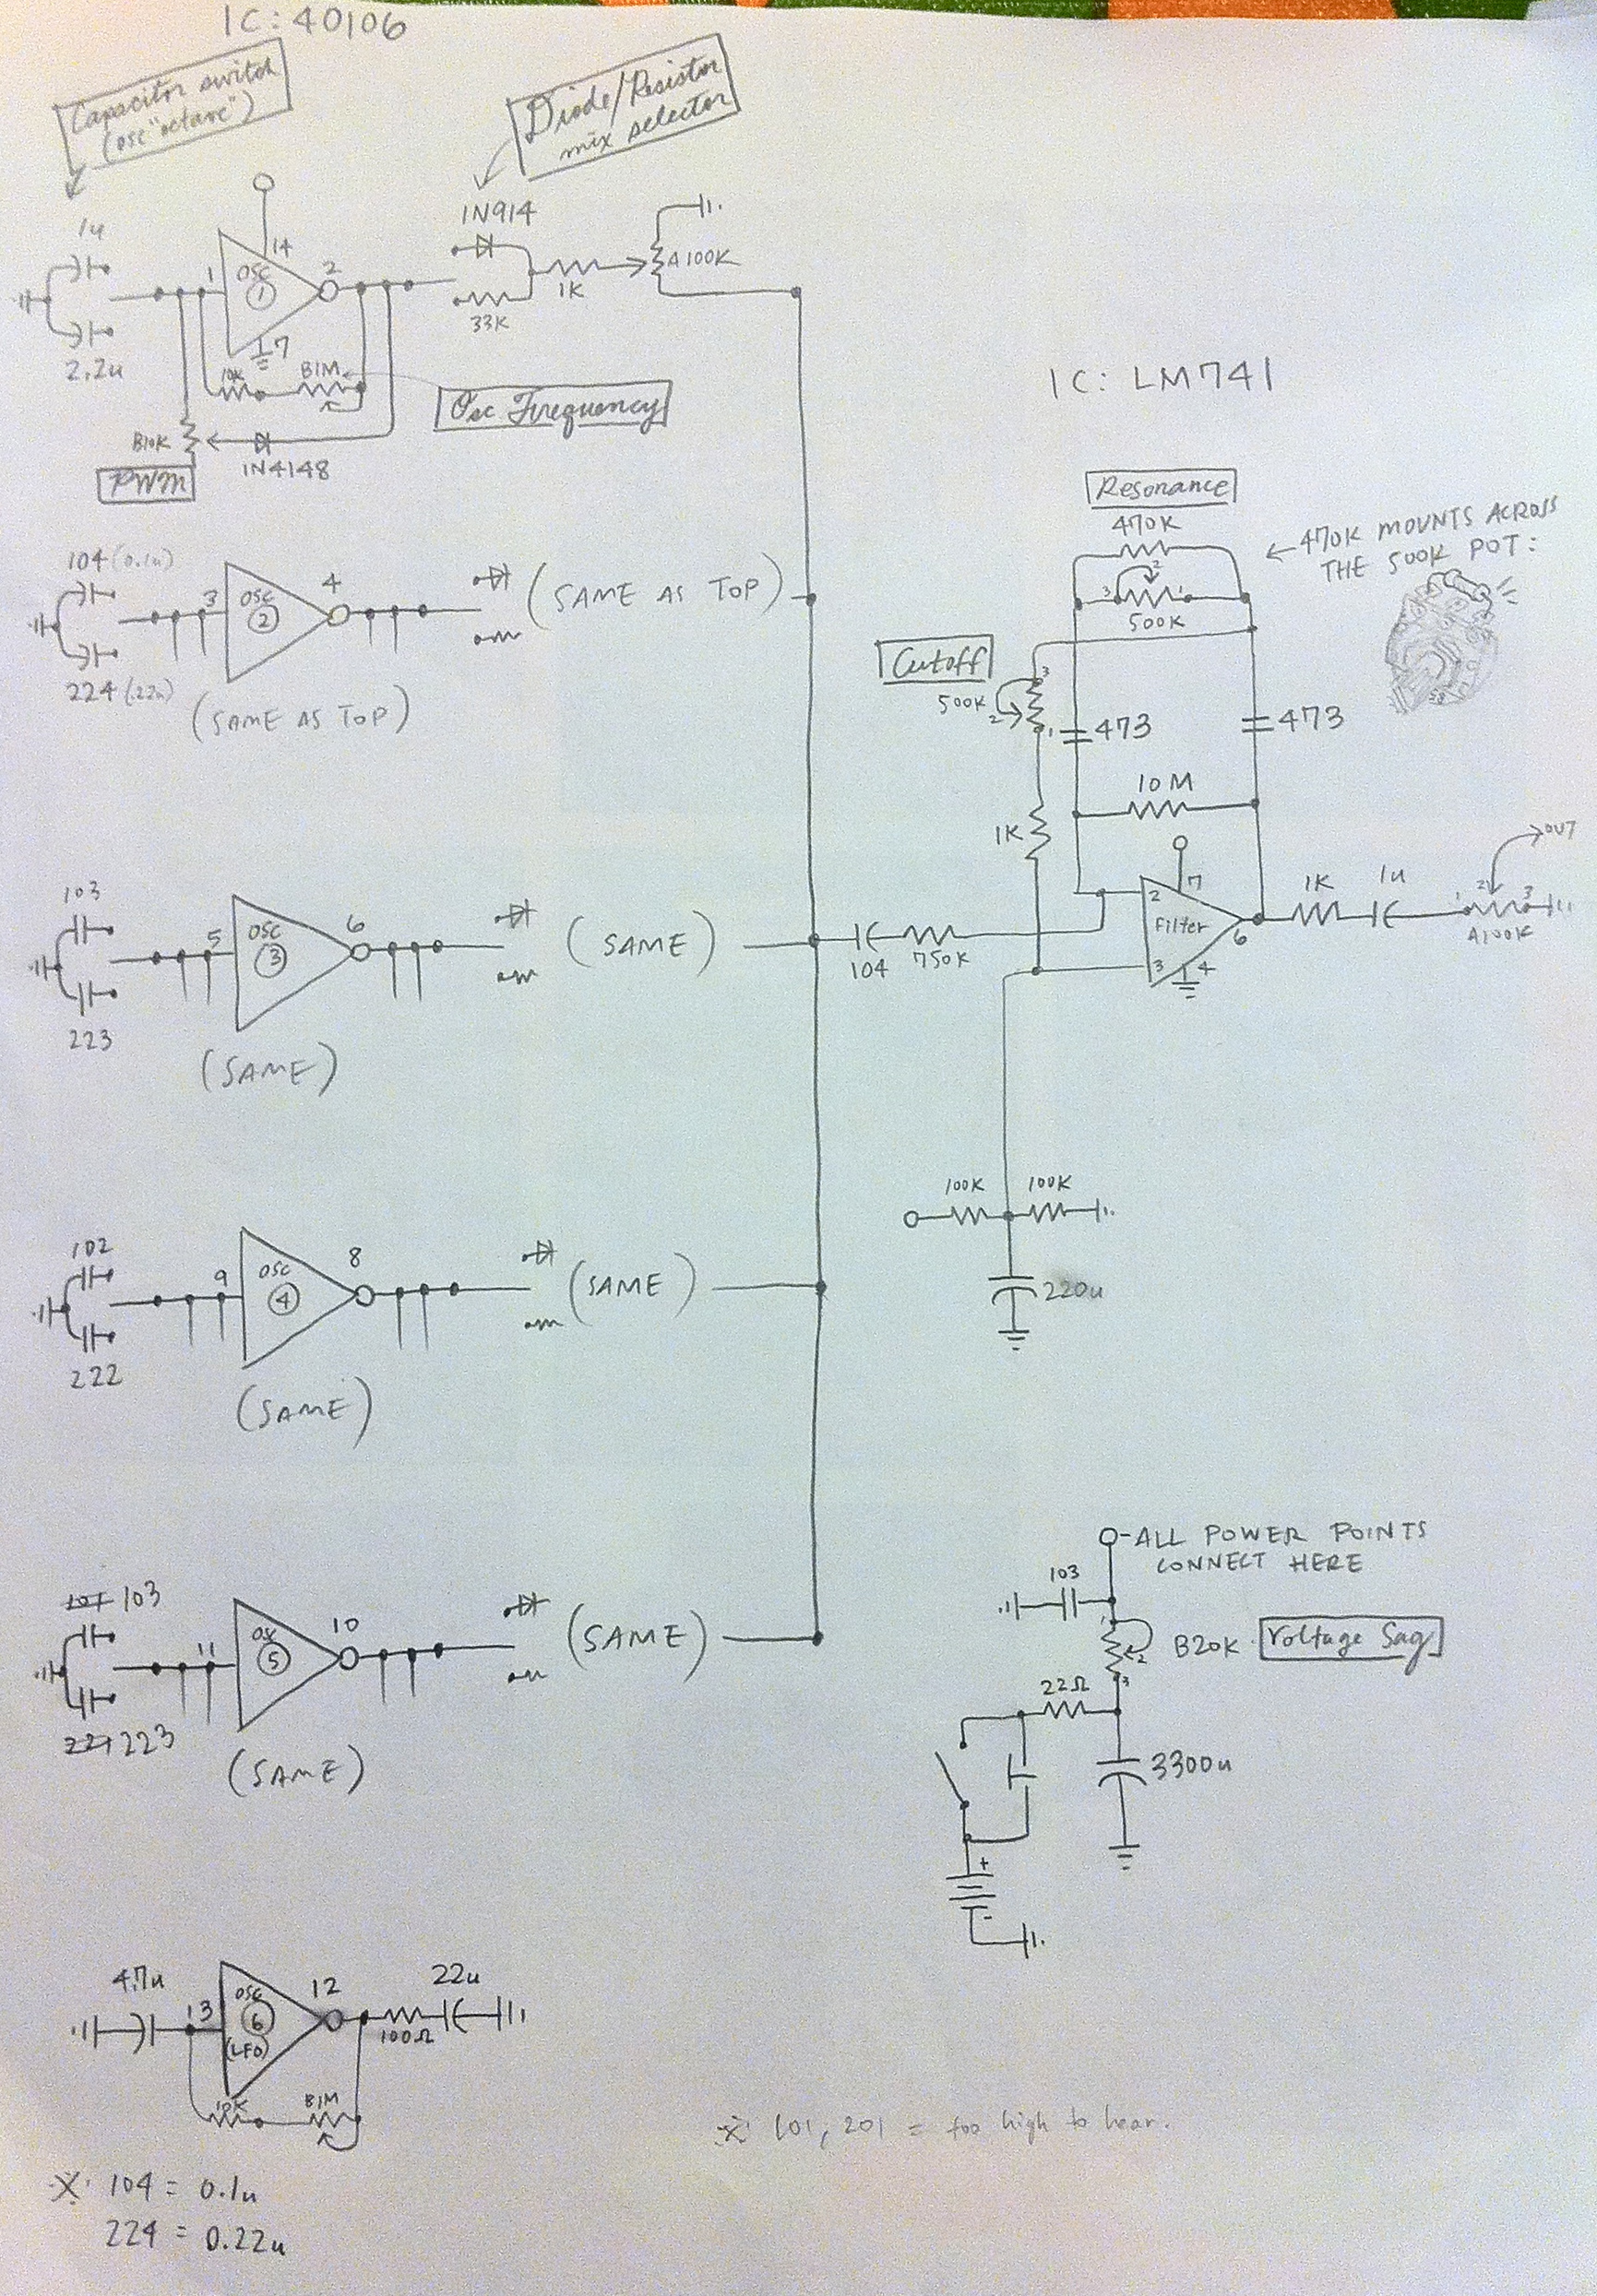 IC: 40106
Capacitor switch
(osc "octave")
Diode/Resistor
mix selector
1u
2.2u
14
1
OSC
1
2
7
10K
B1M
Osc Frequency
B10K
PWM
1N4148
1N914
33K
1K
A100K
104 (0.1u)
224 (.22u)
3
OSC
2
4
(SAME AS TOP)
(SAME AS TOP)
103
223
5
OSC
3
6
(SAME)
(SAME)
102
222
9
OSC
4
8
(SAME)
(SAME)
103
223
11
OSC
5
10
(SAME)
(SAME)
4.7u
13
OSC
6
(LFO)
12
100Ω
22u
10K
B1M
※ 104 = 0.1u
224 = 0.22u
※ 101, 201 = too high to hear.
IC: LM741
Resonance
470K
3
2
1
500K
← 470K MOUNTS ACROSS
THE 500K POT:
Cutoff
500K
3
2
1
473
473
10M
1K
104
750K
2
7
Filter
6
3
4
1K
1u
1
2
3
A100K
OUT
100K
100K
220u
ALL POWER POINTS
CONNECT HERE
103
1
2
3
B20K
Voltage Sag
22Ω
3300u
+
-